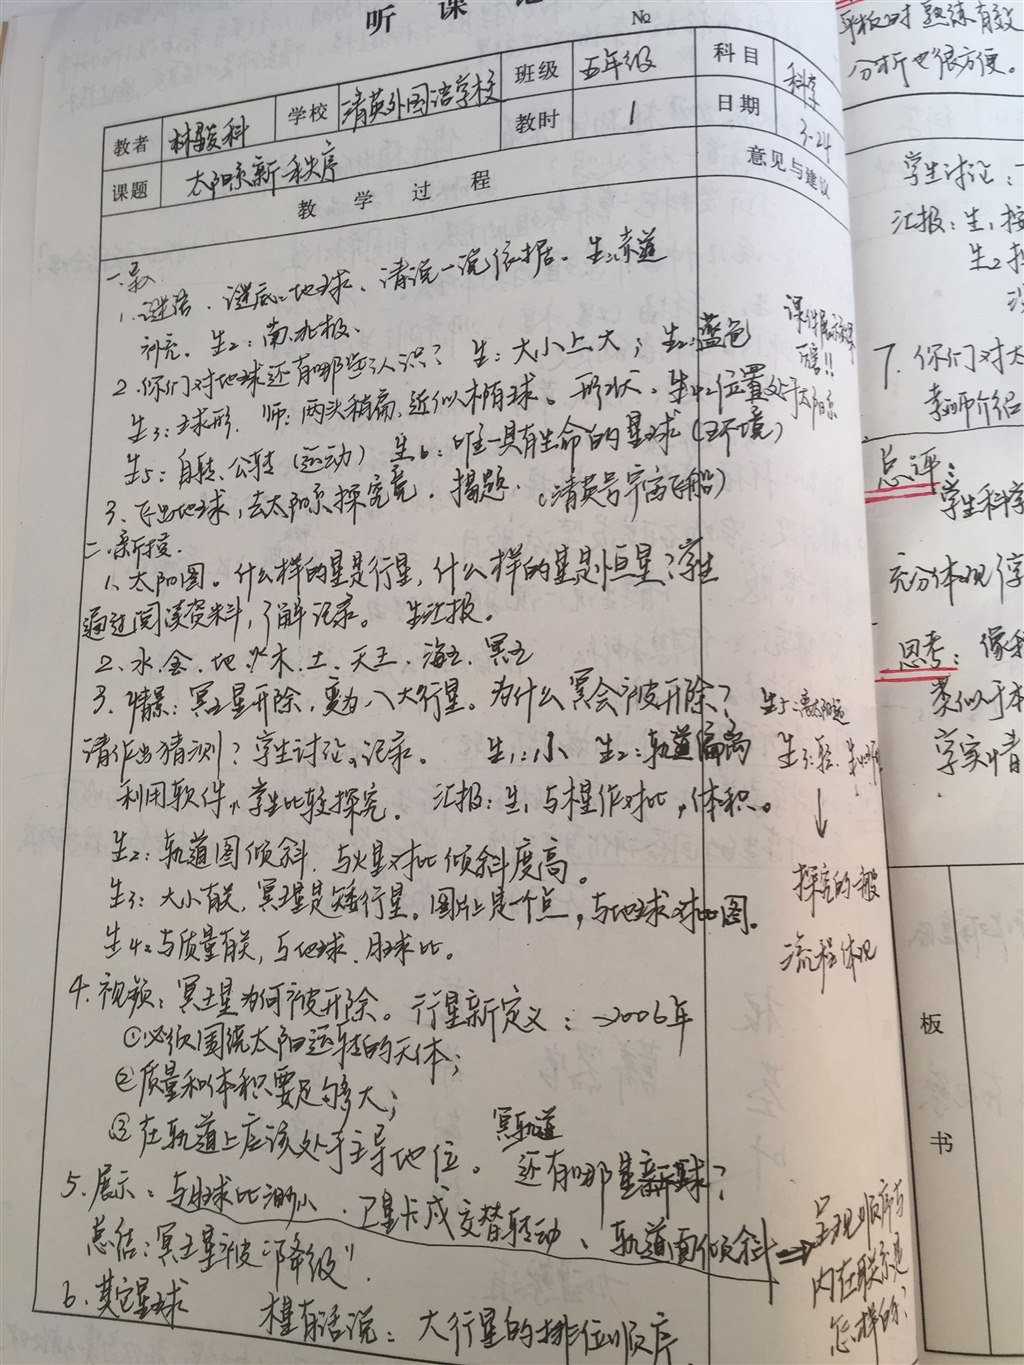 听课记
No
教者 林骏科 学校 清英外国语学校 班级 五年级 科目 科学
课题 太阳系新秩序 教时 1 日期 3.24
教学过程 意见与建议
一、导入
1、谜语、谜底:地球、请说一说依据。生1:赤道
补充。生2:南.北极.
2、你们对地球还有哪些认识?生1:大小上大;生2:蓝色
生3:球形. 师:两头稍扁,近似椭球、形状、生4:位置处于太阳系
生5:自转、公转(运动) 生6:唯一具有生命的星球(环境)
3、飞出地球,去太阳系探究竟.揭题.(清英号宇宙飞船)
课件展示效果
厉害!!
二、新授.
1、太阳图。什么样的星是行星,什么样的星是恒星?学生
通过阅读资料,了解记录。 生汇报。
2、水.金.地.火.木.土.天王.海王.冥王
3、情景:冥王星开除,变为八大行星。为什么冥会被开除?
请作出猜测?学生讨论、记录。 生1:小 生2:轨道偏离
生3:轻.
生5:离太阳远
利用软件,学生比较探究. 汇报:生1与木星作对比,体积。
生2:轨道图倾斜.与火星对比倾斜度高。
生3:大小有关,冥王星是矮行星。图片上是一个点,与地球对比图。
生4:与质量有关,与地球.月球比。
↓
探究的一般
流程体现
4.视频:冥王星为何被开除。行星新定义:→2006年
①必须围绕太阳运转的天体;
②质量和体积要足够大;
③在轨道上应该处于主导地位。
冥轨道
还有哪里新球?
5.展示:与月球比渺小.卫星卡戎交替转动、轨道面倾斜⇒
呈现顺序与
内在联系是
怎样的?
总结:冥王星被“降级”.
6、其它星球 木星有话说:大行星的排位顺序
平板时熟练有效
分析也很方便。
学生讨论:
汇报:生1按
生2按
7.你们对太
老师介绍
总评:
学生科学
充分体现学
思考:像
类似于本
学实情者
板
书